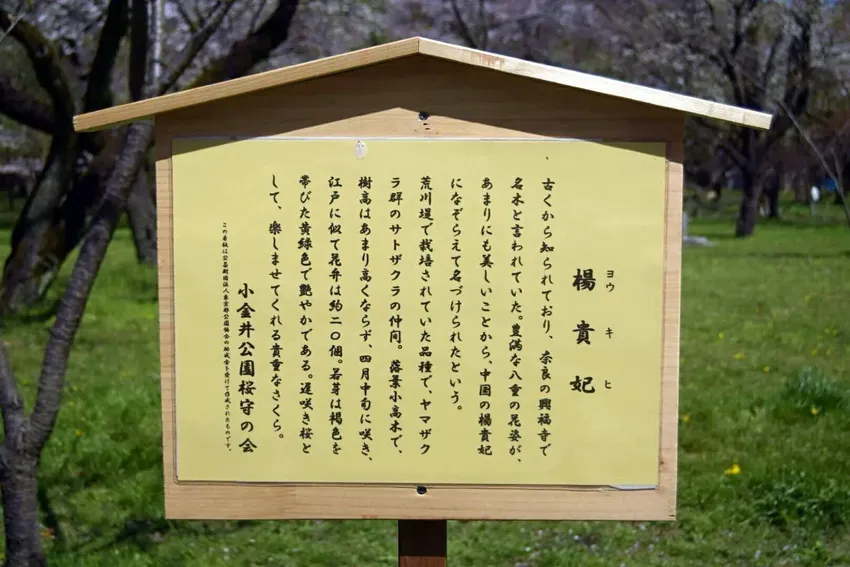 楊貴妃
ヨウ キ ヒ
古くから知られており、奈良の興福寺で
名木と言われていた。豊満な八重の花姿が、
あまりにも美しいことから、中国の楊貴妃
になぞらえて名づけられたという。
荒川堤で栽培されていた品種で、ヤマザク
ラ群のサトザクラの仲间。落葉小高木で、
樹高はあまり高くならず、四月中旬に咲き、
江戸に似て花弁は約二〇個。若芽は褐色を
帯びた黄緑色で艶やかである。遅咲き桜と
して、楽しませてくれる貴重なさくら。
小金井公園桜守の会
この看板は公益財団法人東京都公園協会の助成金を受けて作成されたものです。